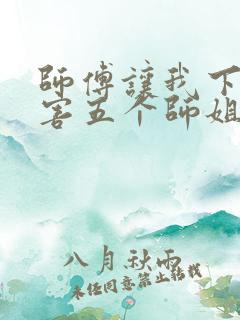 師傅讓我下
害五个師姐
八月秋雨
未经同意禁止转载